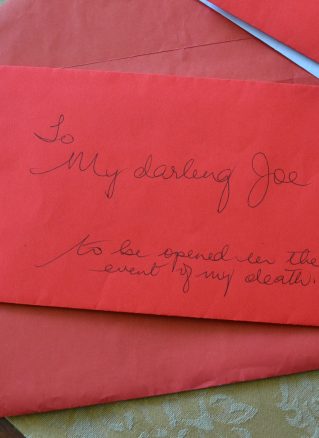 To
My darling Joe
to be opened in the
event of my death.